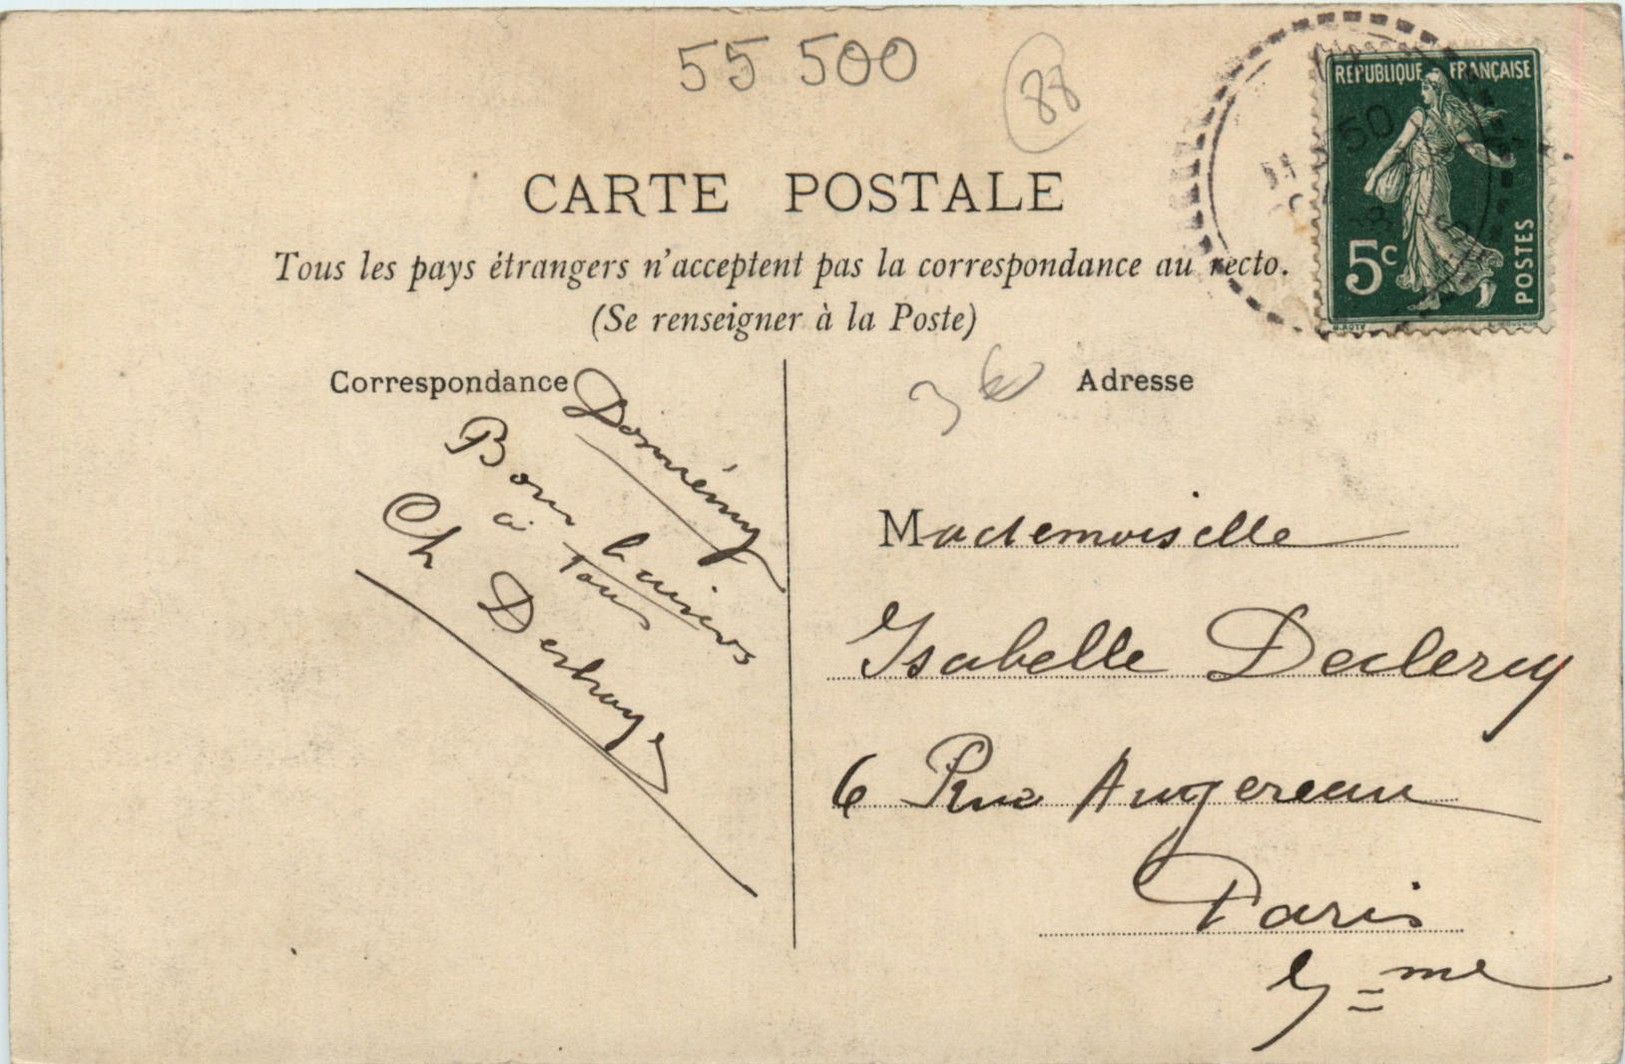 55 500
88
RÉPUBLIQUE FRANÇAISE
5c
POSTES
CARTE POSTALE
Tous les pays étrangers n'acceptent pas la correspondance au recto.
(Se renseigner à la Poste)
Correspondance
Domrémy
Bons baisers
à tous
Ch Deshayes
Adresse
Mademoiselle
Isabelle Declercy
6 Rue Augereau
Paris
7me